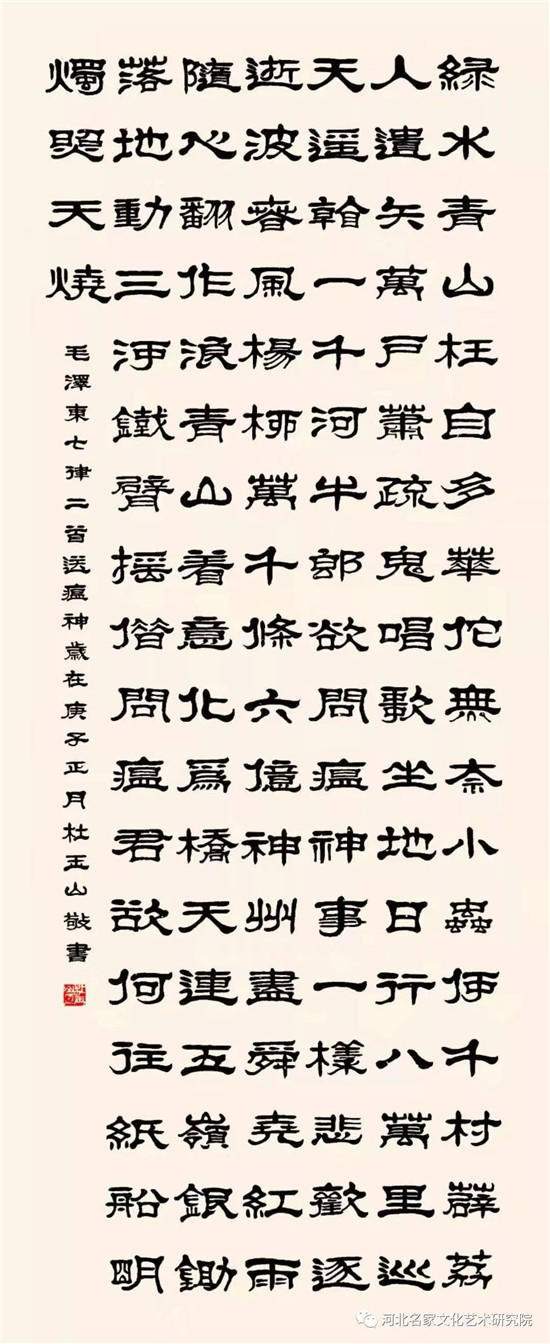 緑水青山枉自多華佗無奈小蟲伊千村薜荔
人遺矢萬戶蕭疏鬼唱歌坐地日行八萬里巡
天遥看一千河牛郎欲問瘟神事一樣悲歡逐
逝波春風楊柳萬千條六億神州盡舜堯紅雨
隨心翻作浪青山着意化爲橋天連五嶺銀鋤
落地動三河鐵臂摇借問瘟君欲何往紙船明
燭照天燒
毛澤東七律二首送瘟神歲在庚子正月杜玉山敬書
河北名家文化艺术研究院